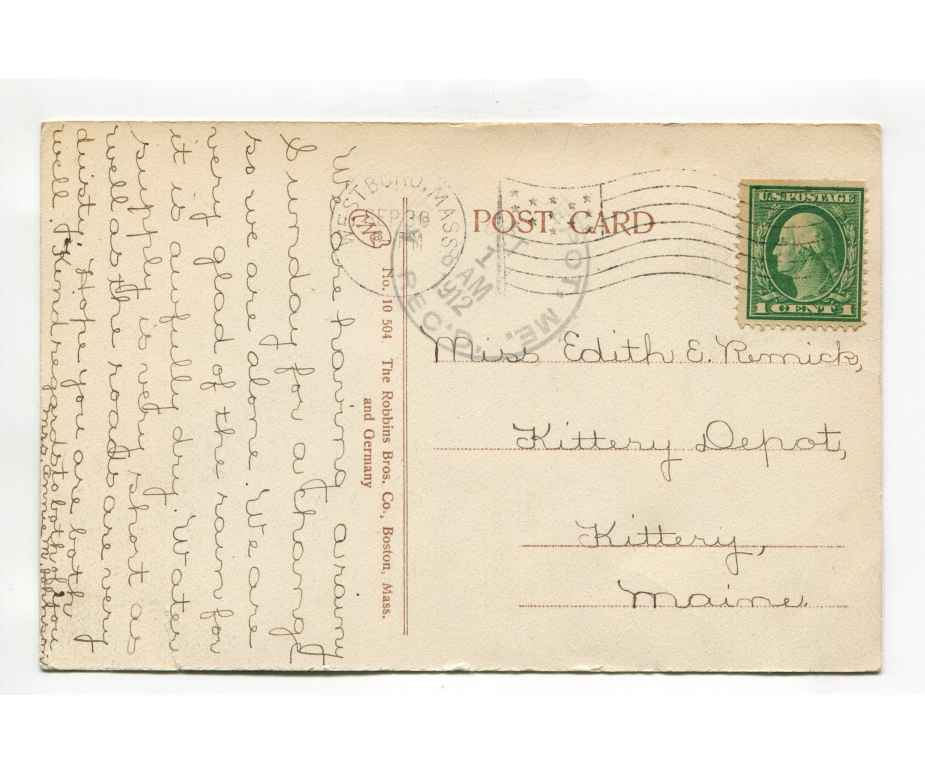 We are having a rainy
Sunday for a change
so we are alone. We are
very glad of the rain for
it is awfully dry. Water
supply is very short as
well as the roads are very
dusty. Hope you are both
well. Kind regards to both of you
Mrs. Annie M.
No. 10 504 The Robbins Bros. Co., Boston, Mass.
and Germany
WESTBORO, MASS.
SEP
8 AM
1912
REC'D.
ME.
POST CARD
U.S. POSTAGE
1 CENT 1
Miss Edith E. Remick,
Kittery Depot,
Kittery,
Maine.